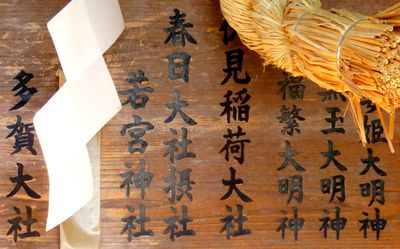 姫大明神
王大明神
福繁大明神
伏見稲荷大社
春日大社摂社
若宮神社
多賀大社